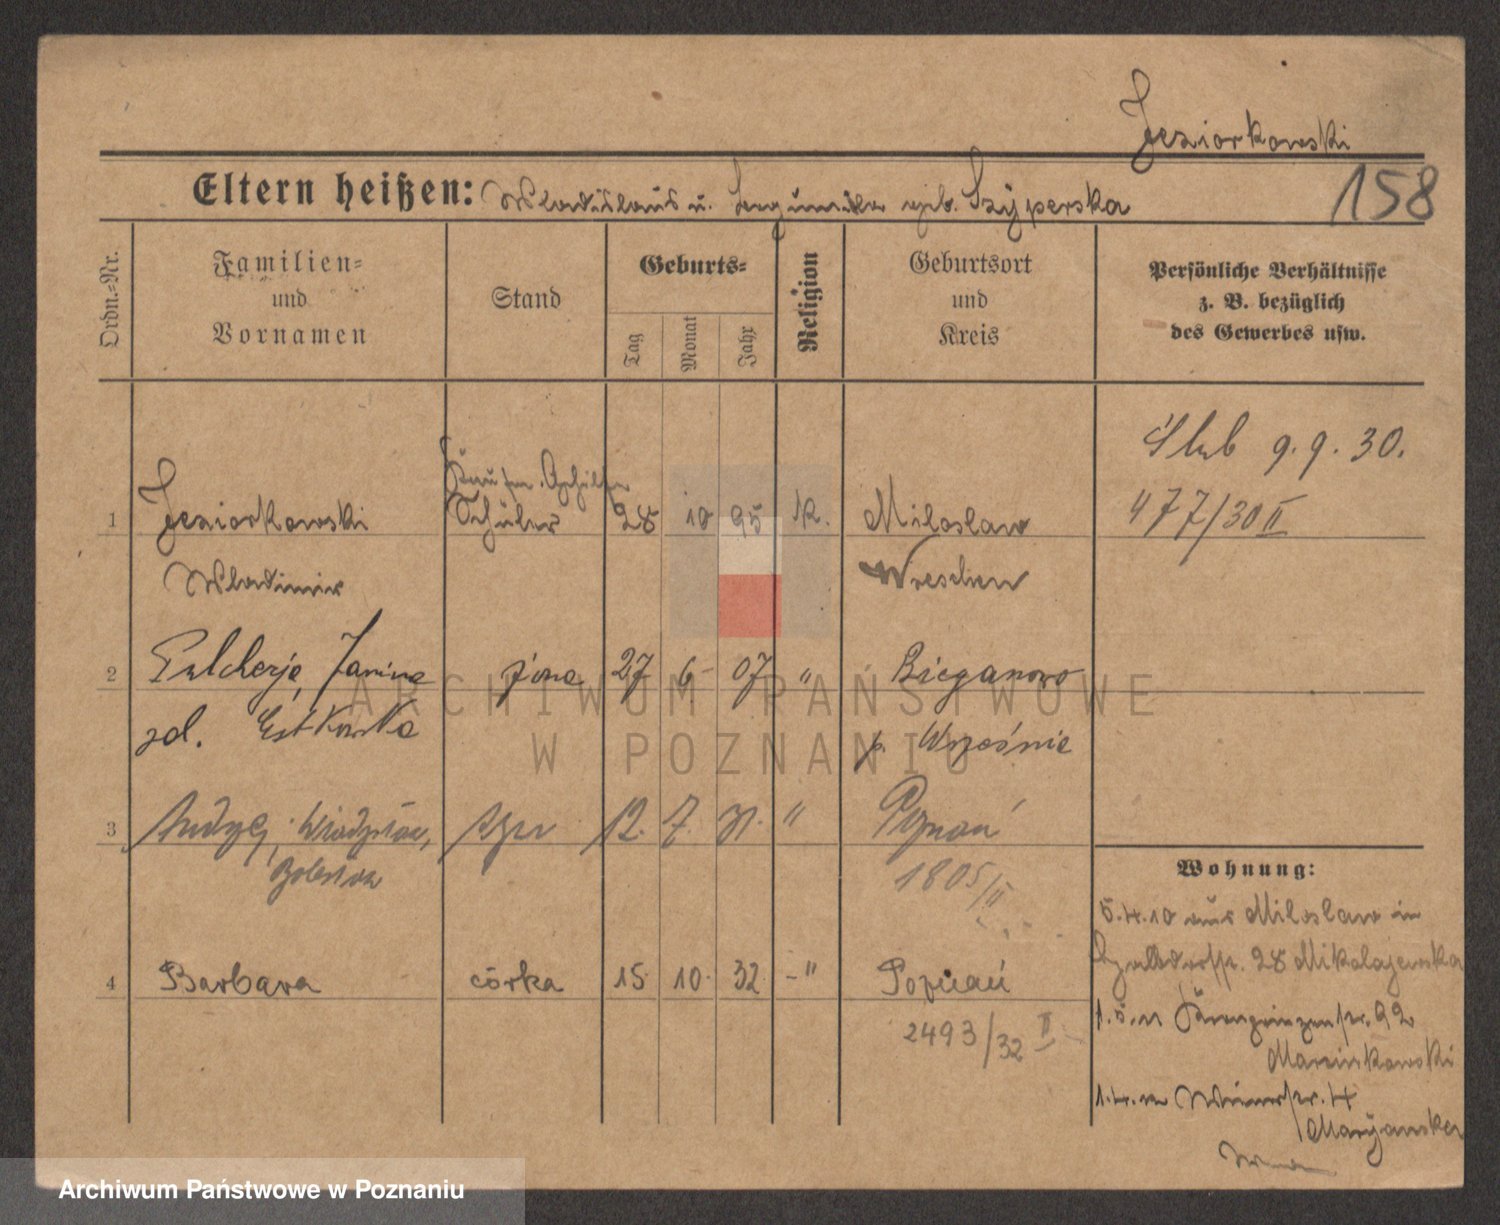 Jeziorkowski
158
Eltern heißen: Wladislaus u. geb. Szyperska
Ordn.-Nr.
Familien-
und
Vornamen
Stand
Geburts-
Tag
Monat
Jahr
Religion
Geburtsort
und
Kreis
Persönliche Verhältnisse
z. B. bezüglich
des Gewerbes usw.
Ślub 9.9.30.
477/30 II
Kaufm. Gehilfe
1 Jeziorkowski Schüler 28 10 95 K. Miloslaw
Wladimir Wreschen
2 Pulcherja, Janina żona 27 6 07 " Bieganowo
zd. Estkowska p. Września
3 Andrzej, syn 12. 7. 31. " Poznań
Bolesław 1805/II
4 Barbara córka 15 10. 32. -" Poznań
2493/32 II
Wohnung:
5.4.10 aus Miloslaw in
28 Mikolajewska
1.5.11 Kronprinzenstr. 92
Marcinkowski
1.4.12 4
Maryanska
ARCHIWUM PAŃSTWOWE
W POZNANIU
Archiwum Państwowe w Poznaniu